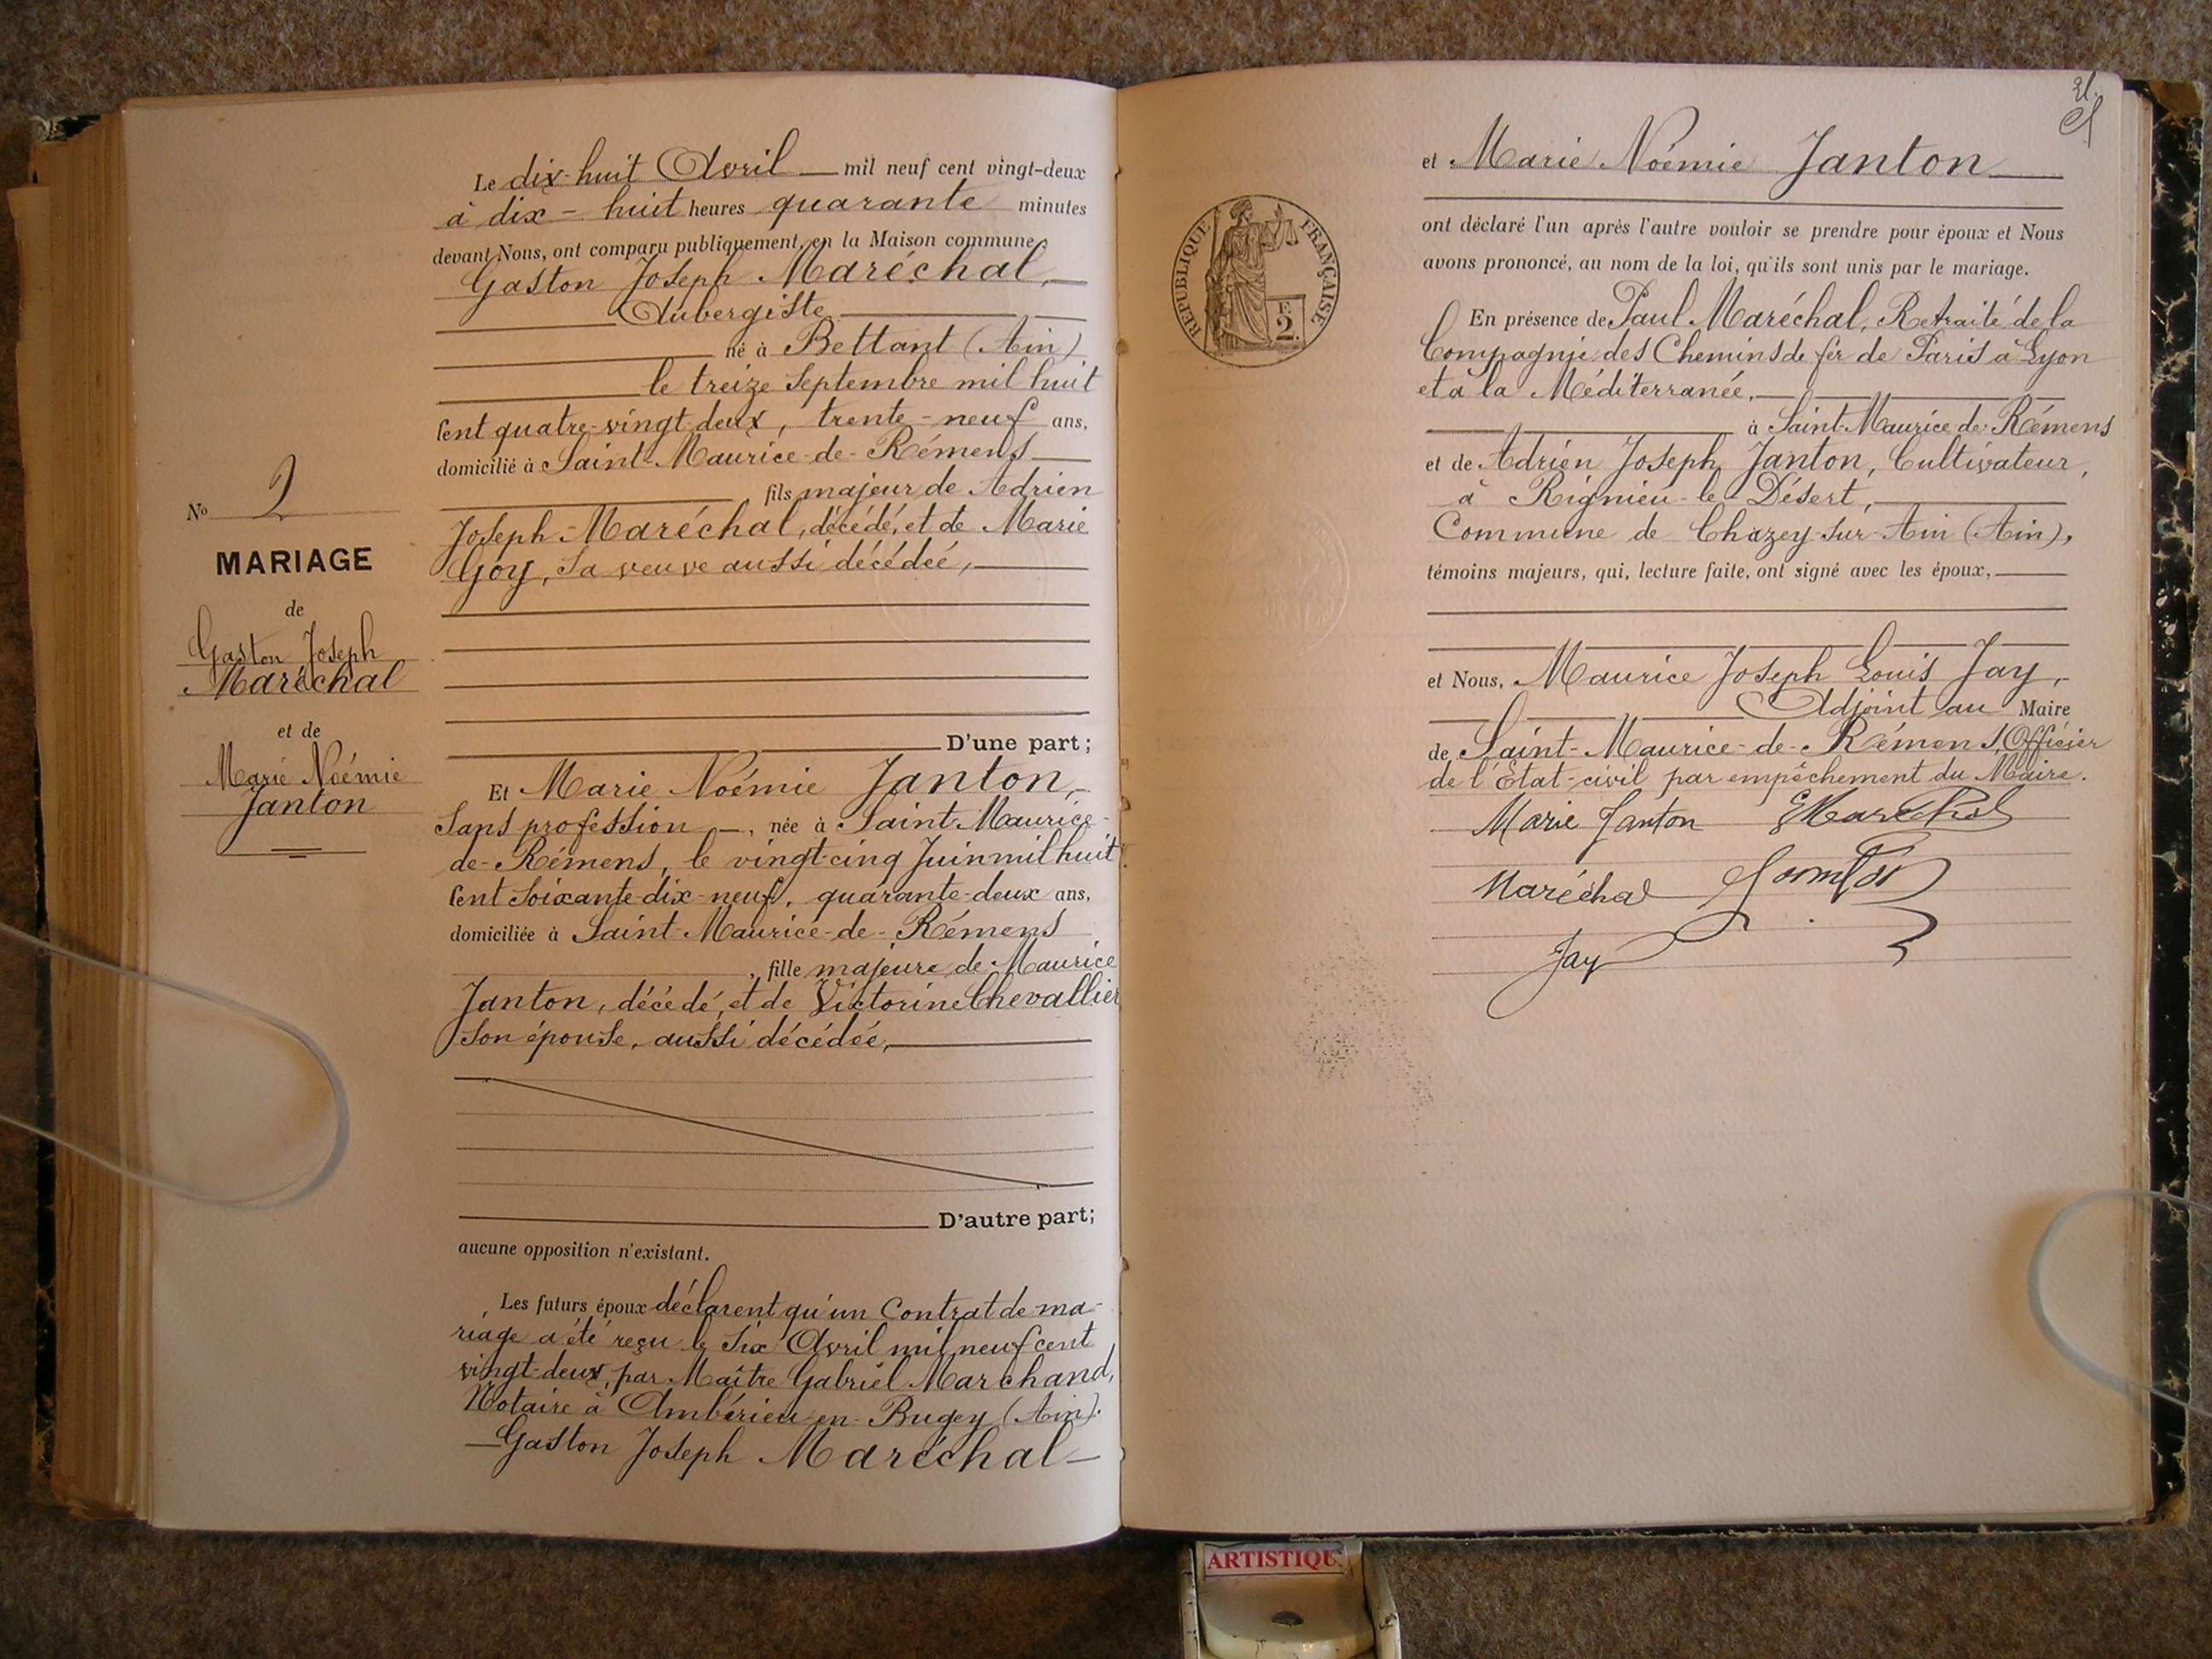 Le dix-huit Avril mil neuf cent vingt-deux
à dix-huit heures quarante minutes
devant Nous, ont comparu publiquement, en la Maison commune :
Gaston Joseph Maréchal,
Aubergiste
né à Bettant (Ain)
le treize Septembre mil huit
cent quatre-vingt-deux, trente-neuf ans,
domicilié à Saint-Maurice-de-Rémens
fils majeur de Adrien
Joseph Maréchal, décédé, et de Marie
Goy, sa veuve aussi décédée,
D'une part ;
No 2
MARIAGE
de
Gaston Joseph
Maréchal
et de
Marie Noémie
Janton
Et Marie Noémie Janton,
Sans profession, née à Saint-Maurice-
de-Rémens, le vingt-cinq Juin mil huit
cent soixante-dix-neuf, quarante-deux ans,
domiciliée à Saint-Maurice-de-Rémens
, fille majeure de Maurice
Janton, décédé, et de Victorine Chevallier
son épouse, aussi décédée,
D'autre part;
aucune opposition n'existant.
Les futurs époux déclarent qu'un Contrat de ma-
riage a été reçu le six Avril mil neuf cent
vingt-deux, par Maître Gabriel Marchand,
Notaire à Ambérieu-en-Bugey (Ain).
Gaston Joseph Maréchal
21.
et Marie Noémie Janton
ont déclaré l'un après l'autre vouloir se prendre pour époux et Nous
avons prononcé, au nom de la loi, qu'ils sont unis par le mariage.
RÉPUBLIQUE FRANÇAISE
F.
2.
En présence de Paul Maréchal, Retraité de la
Compagnie des Chemins de fer de Paris à Lyon
et à la Méditerranée,
à Saint-Maurice-de-Rémens
et de Adrien Joseph Janton, Cultivateur,
à Rignieu-le-Désert,
Commune de Chazey-sur-Ain (Ain),
témoins majeurs, qui, lecture faite, ont signé avec les époux,
et Nous, Maurice Joseph Louis Jay,
Adjoint au Maire
de Saint-Maurice-de-Rémens, Officier
de l'Etat-civil par empêchement du Maire.
Marie Janton GMaréchal
Maréchal
Jay
ARTISTIQU